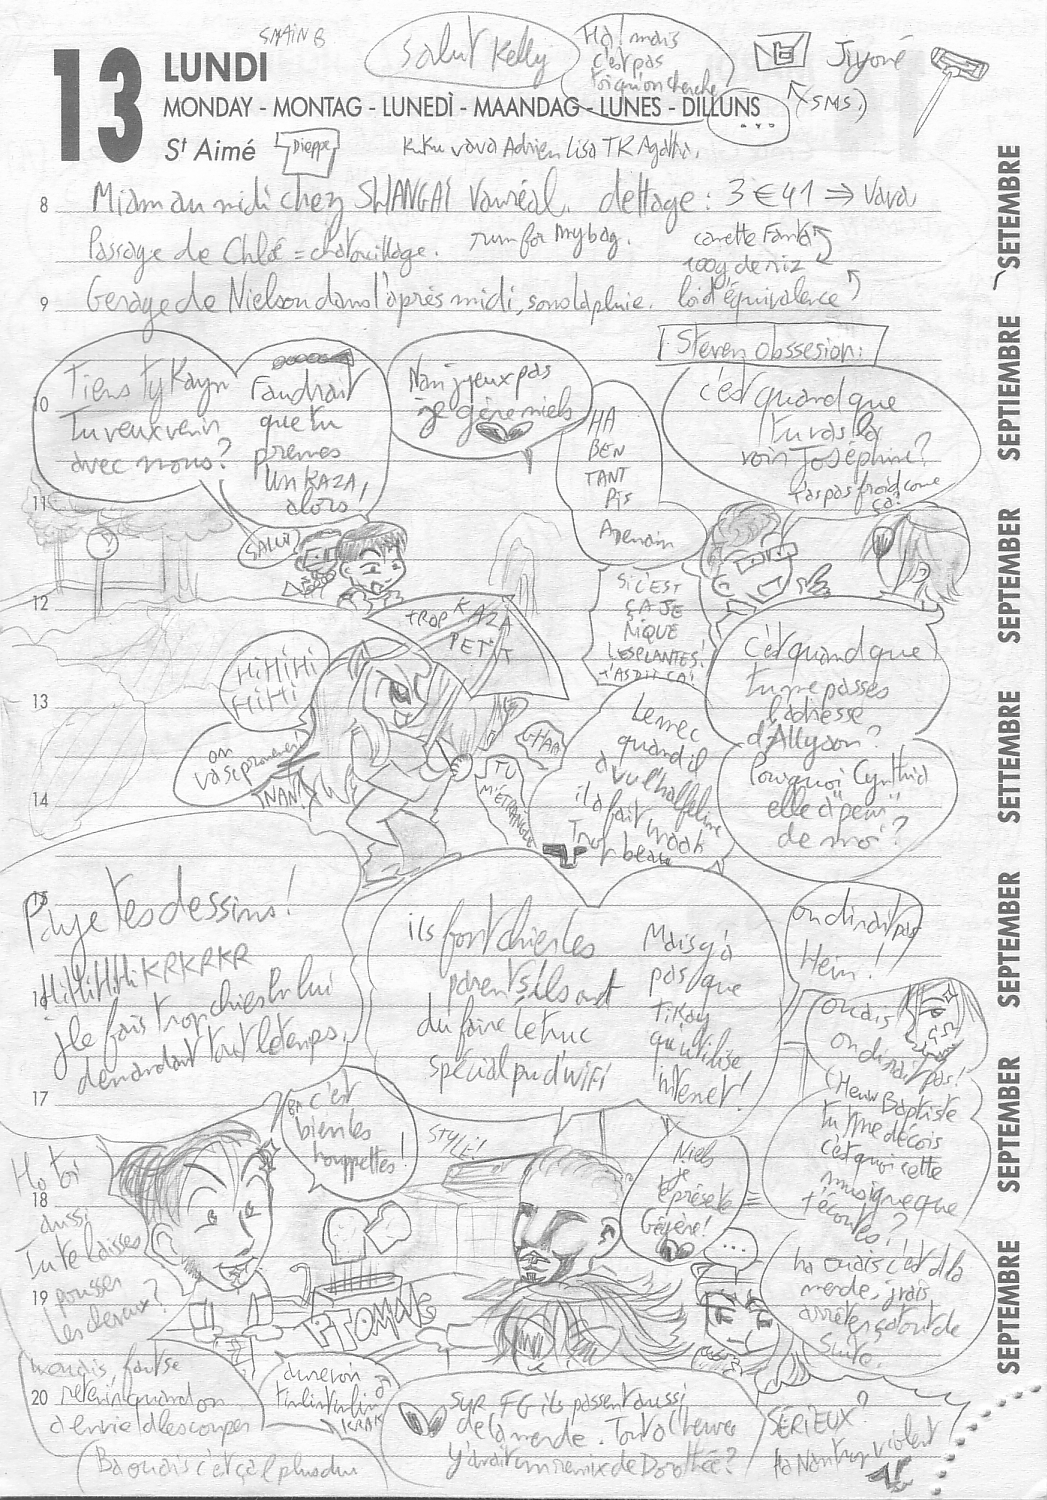 13
LUNDI
SMAIN 8
MONDAY - MONTAG - LUNEDÌ - MAANDAG - LUNES - DILLUNS
St Aimé
Dieppe
Salut Kelly
Ha! mais
c'est pas
toi qu'on cherche
...
Jiyoné
(SMS)
Kuku vava Adrien Lisa TK Agatha.
8
Miam au midi chez SHANGAÏ Vauréal. dettage : 3€41 ⇒ Vava
Passage de Chloé = chatouillage.
rum for my bag.
canette Fanta
100g de riz
9
Gerage de Nielson dans l'après midi, sous la pluie.
loi d'équivalence
Steven obssesion:
Tiens Ty Kayn
Tu veux venir
avec nous?
Faudrait
que tu
prennes
un KAZA,
alors
Nan j'peux pas
je gère niels
HA
BEN
TANT
PIS
c'est quand que
tu vas la
voir Joséphine?
t'as pas froid come
ça?
10
11
SALUT
12
TROP KAZA
PETIT
SI C'EST
ÇA JE
NIQUE
LES PLANTES!
T'AS DIT ÇA!
c'est quand que
tu me passes
l'adresse
d'Allyson?
Pourquoi Cynthia
elle a "peur"
de moi?
HiHiHi
HiHi
13
on
va se promener
INANT
GHAA
TU
M'ÉTRANGLE
Le mec
quand il
a vu l'halfeline
il a fait woak
Trop beau
14
15
Paye tes dessins!
HiHiHiHiKRKRKR
Je fais trop chier Lulu
demandant tout le temps.
ils font chier les
parents, ils ont
du faire le truc
spécial pu d'wifi
Mais y'a
pas que
TiKay
qui utilise
internet!
on dirait pas
Hein!
16
ouais
on dirait pas!
(Heuw Baptiste
tu me décois
c'est quoi cette
musique que
t'écoutes?
17
BA c'est
bien les
houppettes!
STYLÉ!
Niels
je
te présete
Gégère!
...
Ho toi
aussi
Tu te laisses
pousser
les cheveux?
18
ha ouais c'est d'la
merde, j'vais
arrêter ça tout de
suite.
19
20
mouais, faut se
retenir quand on
a envie d'les couper
KRAK
Ba ouais c'est ça l'plus dur
Sur FG ils passent aussi
de la merde. Tout à l'heure
y'avait un remix de Dorothée?
SÉRIEUX?
Ha Nan trop violent
SETEMBRE
SEPTIEMBRE
SEPTEMBER
SETTEMBRE
SEPTEMBER
SEPTEMBER
SEPTEMBRE